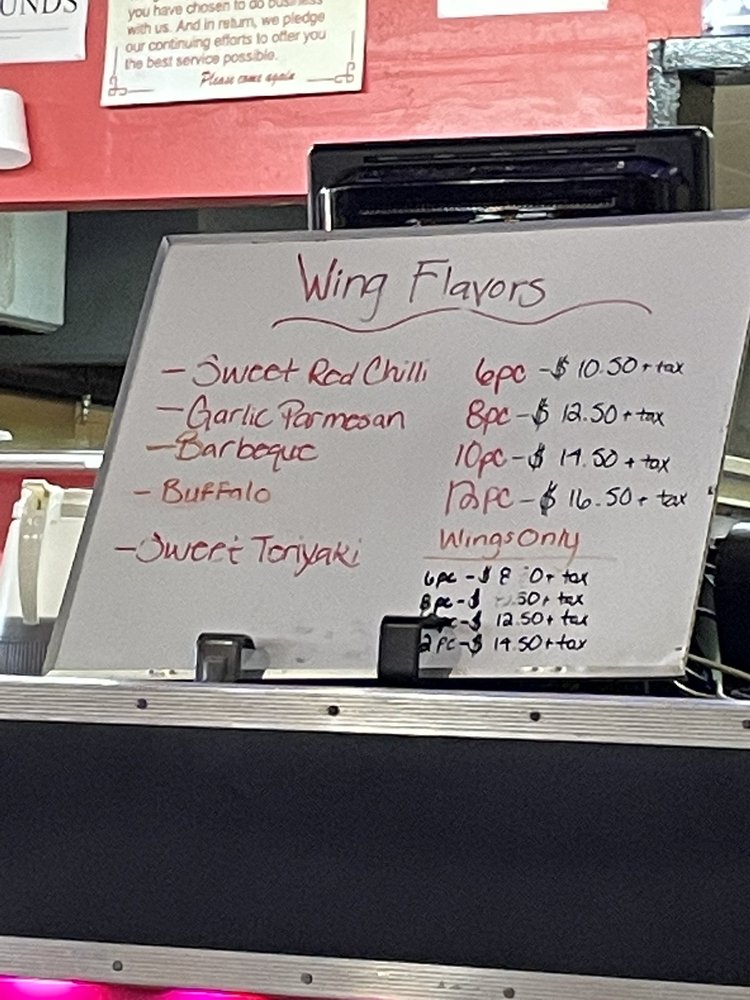 you have chosen to do business
with us. And in return, we pledge
our continuing efforts to offer you
the best service possible.
Please come again
Wing Flavors
- Sweet Red Chilli 6pc - $ 10.50 + tax
- Garlic Parmesan 8pc - $ 12.50 + tax
- Barbeque 10pc - $ 14.50 + tax
- Buffalo 12pc - $ 16.50 + tax
- Sweet Toriyaki
Wings Only
6pc - $ 8 0+ tax
8pc - $ .50+ tax
pc - $ 12.50+ tax
2pc - $ 14.50+ tax